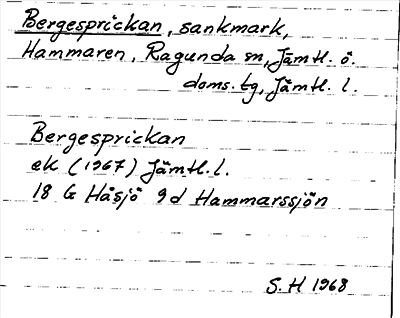 Bergesprickan, sankmark,
Hammaren, Ragunda sn, Jämtl. ö.
doms. tg, Jämtl. l.
Bergesprickan
ek (1967) Jämtl. l.
18 G Håsjö 9d Hammarssjön
S. H 1968